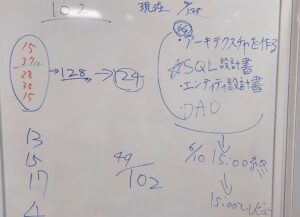 102
現在
15
37
28
33
15
→128→124
・アーキテクスチャを作る
☆SQL設計書
・エンティティ設計書
・DAO
13
15
17
4
44/102
6/10 15:00終
15:00